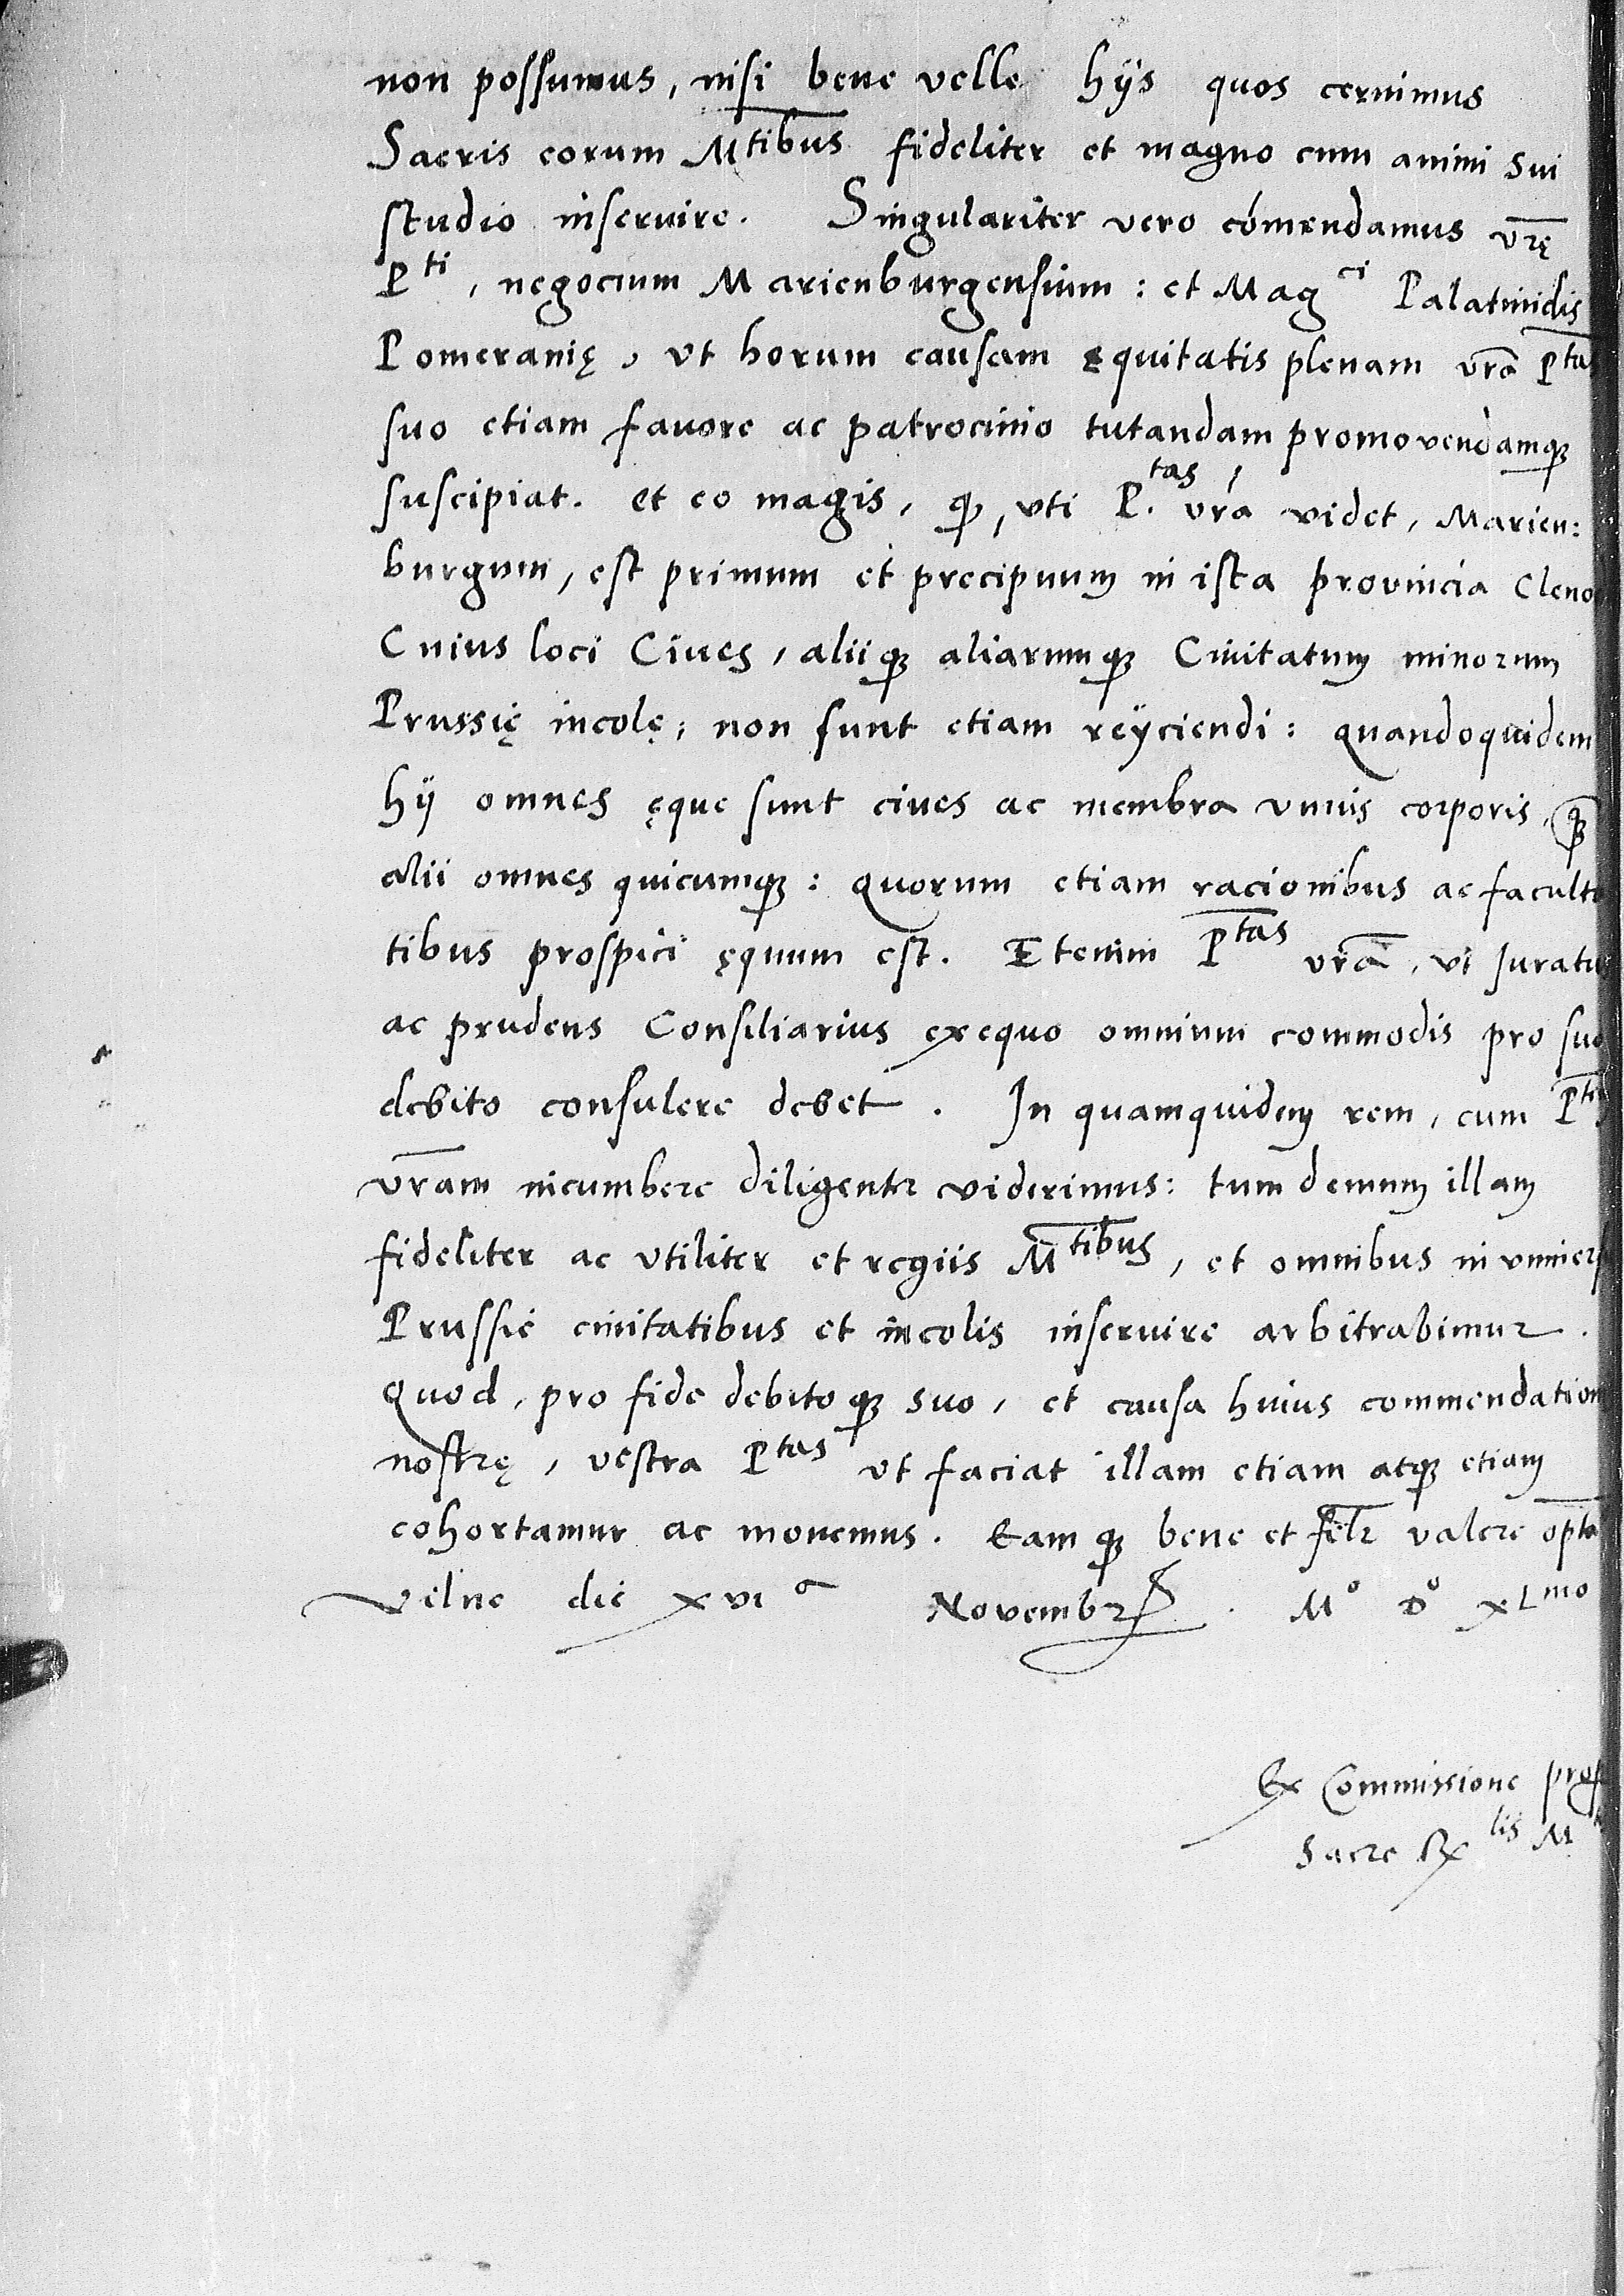 non possumus, nisi bene velle hijs quos cernimus
Sacris eorum M<sup>tibus</sup> fideliter et magno cum animi sui
studio inservire. Singulariter vero comendamus vrę
P<sup>ti</sup>, negocium Marienburgensium: et Mag<sup>ci</sup> Palatinidis
Pomeranię, vt horum causam ęquitatis plenam vra P<sup>tas</sup>
suo etiam favore ac patrocinio tutandam promovendamqꝫ
suscipiat. et eo magis, ꝙ, vti P.<sup>tas</sup> vra videt, Marien:
burgum, est primum et precipuum in ista provincia Cleno
Cuius loci Cives, aliiqꝫ aliarumqꝫ Civitatum minorum
Prussię incolę; non sunt etiam reijciendi: quandoquidem
hij omnes ęque sunt cives ac membra vnius corporis,
alii omnes quicumqꝫ: quorum etiam racionibus ac faculta
tibus prospici ęquum est. Etenim P<sup>tas</sup> vra, vt Juratu
ac prudens Consiliarius exequo omnium commodis pro suo
debito consulere debet. In quamquidem rem, cum P<sup>tem</sup>
vram incumbere diligenter viderimus: tum demum illam
fideliter ac vtiliter et regiis M<sup>tibus</sup>, et omnibus in vniuers
Prussie civitatibus et incolis inservire arbitrabimur.
Quod, pro fide debitoqꝫ suo, et causa huius commendation
nostrę, vestra P<sup>tas</sup> vt faciat illam etiam atqꝫ etiam
cohortamur ac monemus. Eamqꝫ bene et felr valere opta
Vilne die xvi<sup>a</sup> Novembr. M<sup>o</sup> D<sup>o</sup> xL<sup>mo</sup>
Ex Commissione prop
Sacre R<sup>lis</sup> M